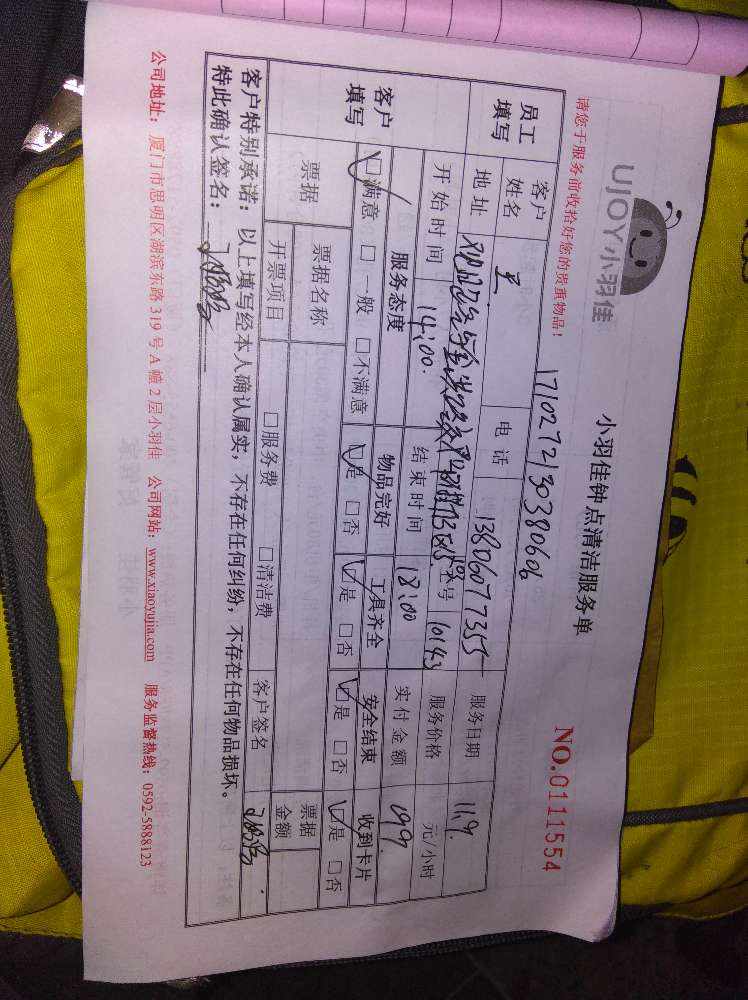 UJOY小羽佳
小羽佳钟点清洁服务单
NO.0111554
请您于服务前收拾好您的贵重物品!
1710272130380606
员工填写
客户姓名
电话 13806077355
服务日期 11.9.
地址
工号 10143
服务价格 元/小时
开始时间 14:00.
结束时间 18:00
实付金额 199
客户填写
服务态度 物品完好 工具齐全 安全结束 收到卡片
☑满意 □一般 □不满意 ☑是 □否 ☑是 □否 ☑是 □否 ☑是 □否
票据
票据名称 □服务费 □清洁费
开票项目
客户签名
票据金额
客户特别承诺:以上填写经本人确认属实,不存在任何纠纷,不存在任何物品损坏。
特此确认签名:
公司地址:厦门市思明区湖滨东路319号A幢2层小羽佳 公司网站:www.xiaoyujia.com 服务监督热线:0592-5888123